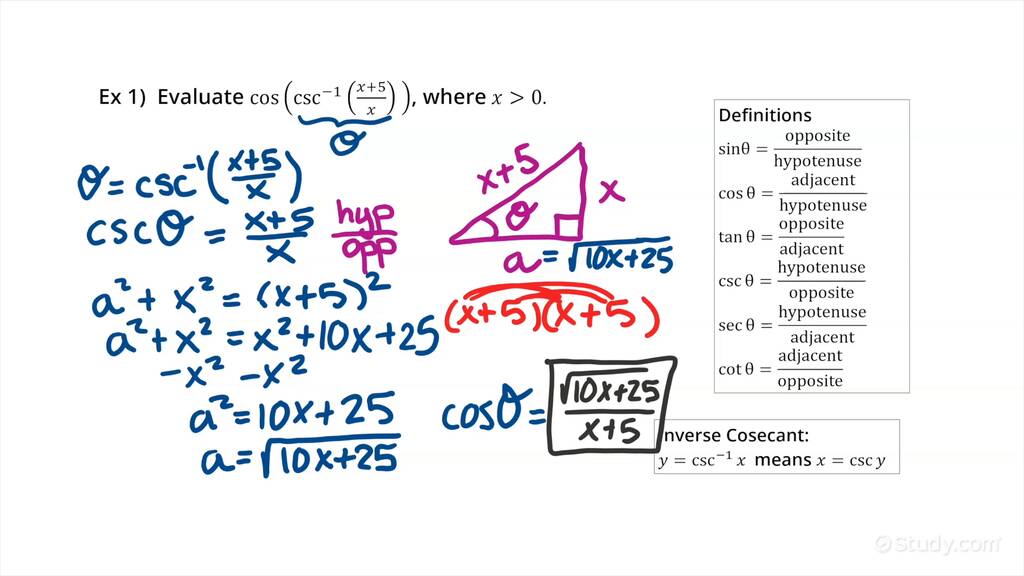 Ex 1)  Evaluate cos(csc⁻¹((x+5)/x)), where x > 0.
θ
θ = csc⁻¹((x+5)/x)
cscθ = (x+5)/x  hyp/opp
a² + x² = (x+5)²
a² + x² = x² + 10x + 25
-x²  -x²
a² = 10x + 25
a = √(10x+25)
x+5
θ
x
a = √(10x+25)
(x+5)(x+5)
cosθ = √(10x+25)/(x+5)
Definitions
sinθ = opposite/hypotenuse
cos θ = adjacent/hypotenuse
tan θ = opposite/adjacent
csc θ = hypotenuse/opposite
sec θ = hypotenuse/adjacent
cot θ = adjacent/opposite
nverse Cosecant:
y = csc⁻¹ x  means  x = csc y
Study.com